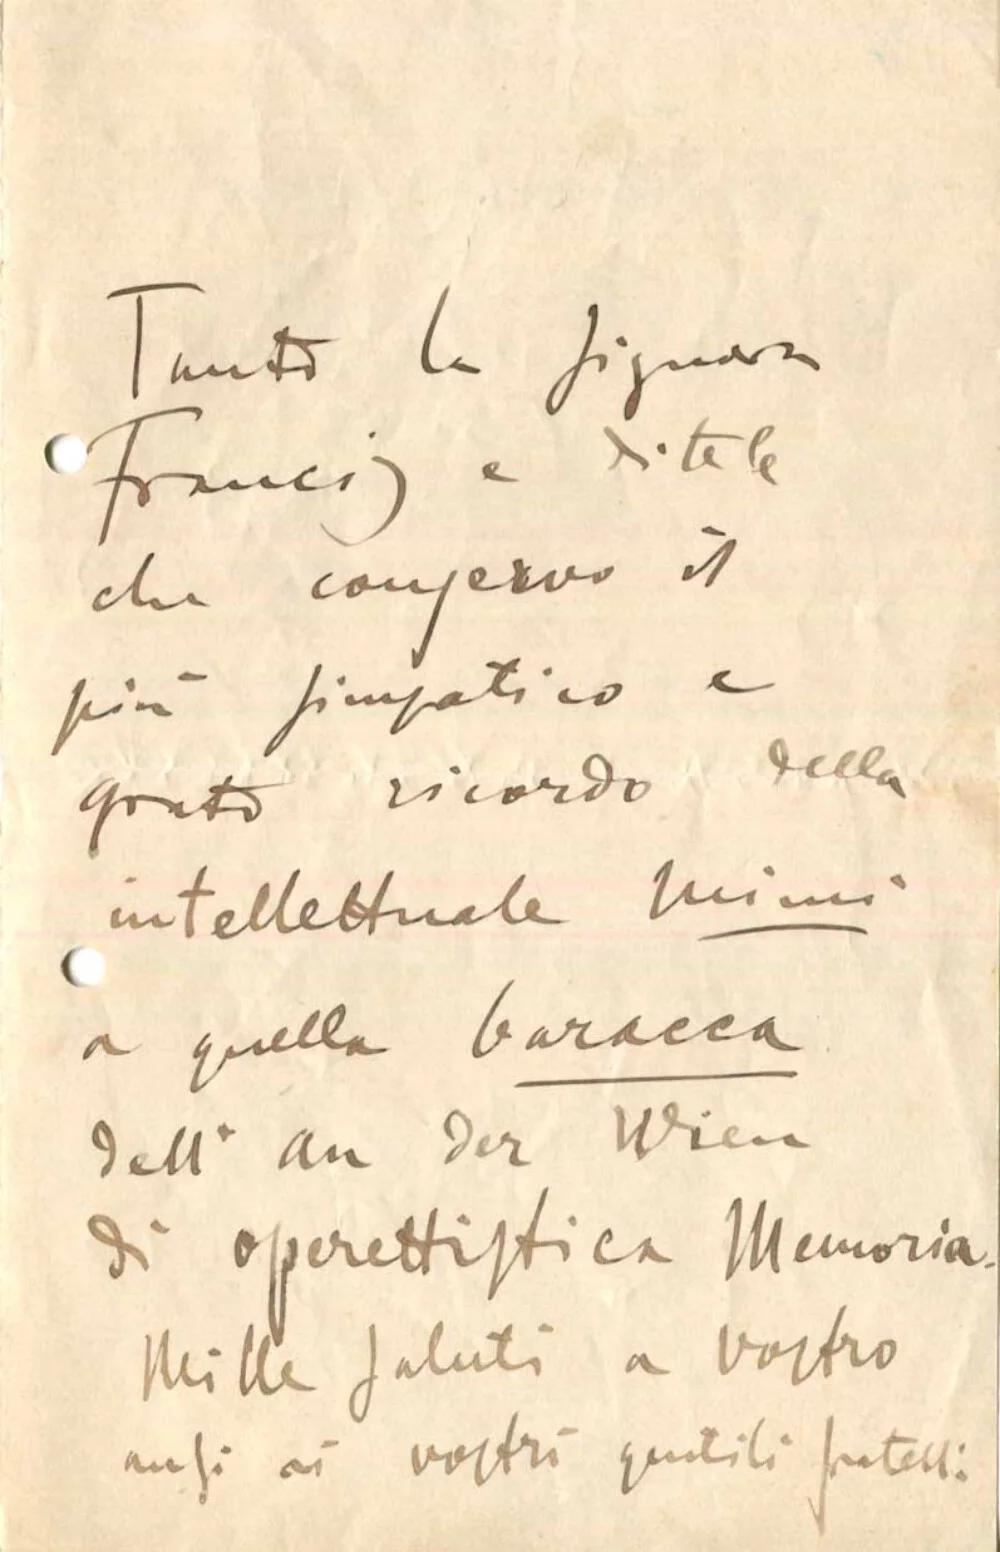 Tanto la signora
Francis e ditele
che conservo il
più simpatico e
grato ricordo della
intellettuale Mimi
a quella baracca
dell' An der Wien
di operettistica Memoria.
Mille saluti a vostro
anzi ai vostri gentili fratelli.